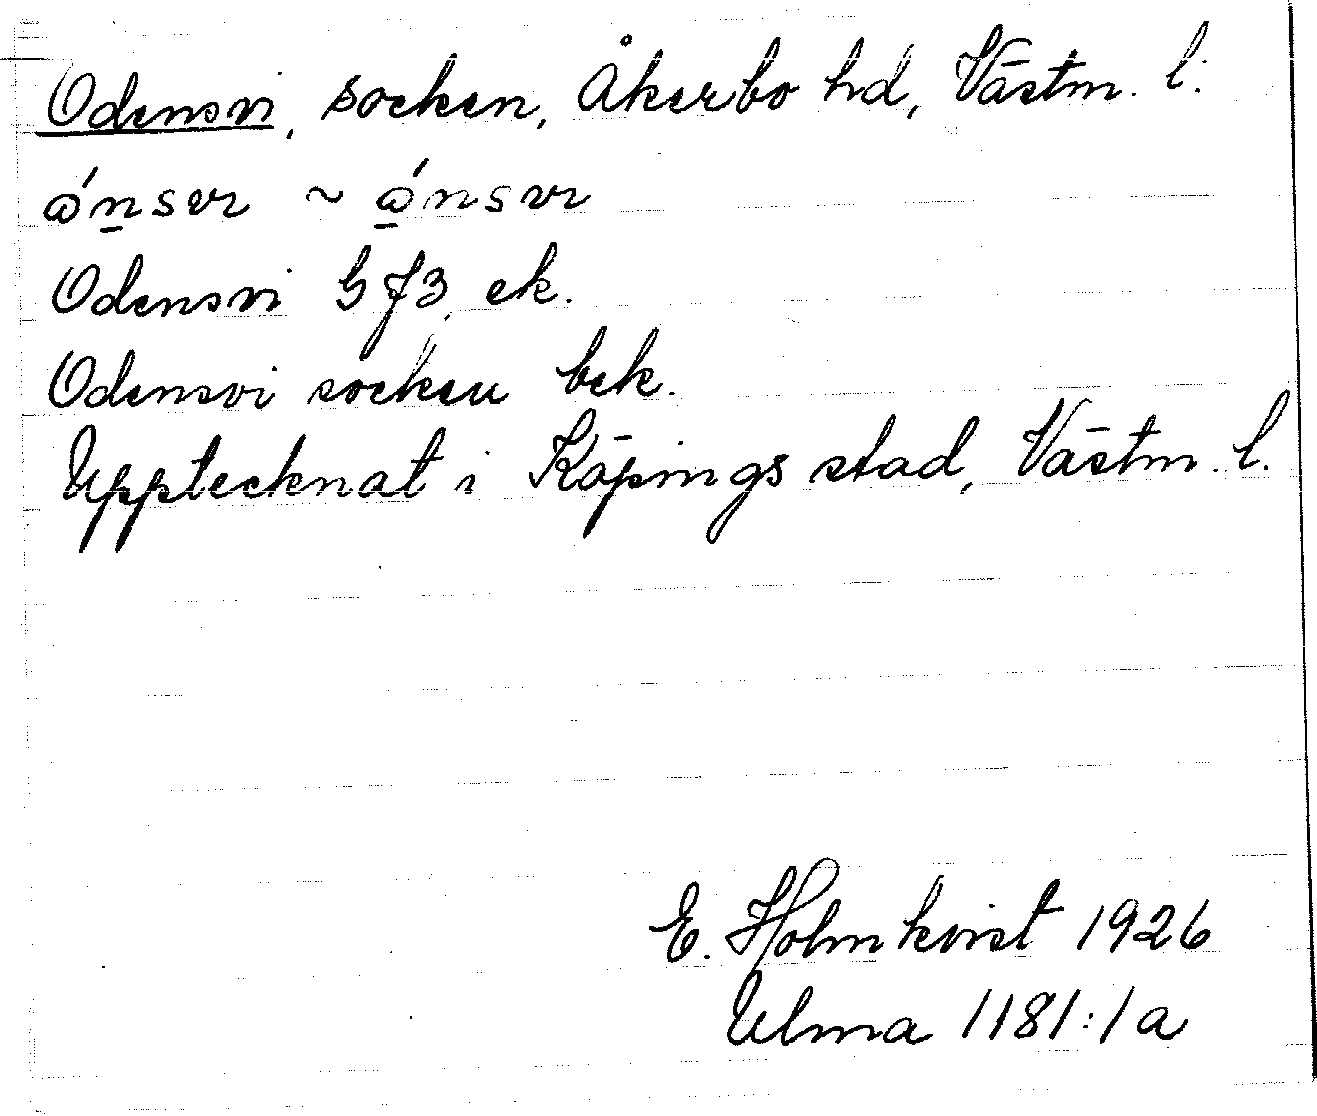 Odensvi, socken, Åkerbo hd, Västm. l.
Odensvi G f3, ek.
Odensvi socken bek.
Upptecknat i Köpings stad, Västm. l.
E. Holmkvist 1926
Ulma 1181:1a